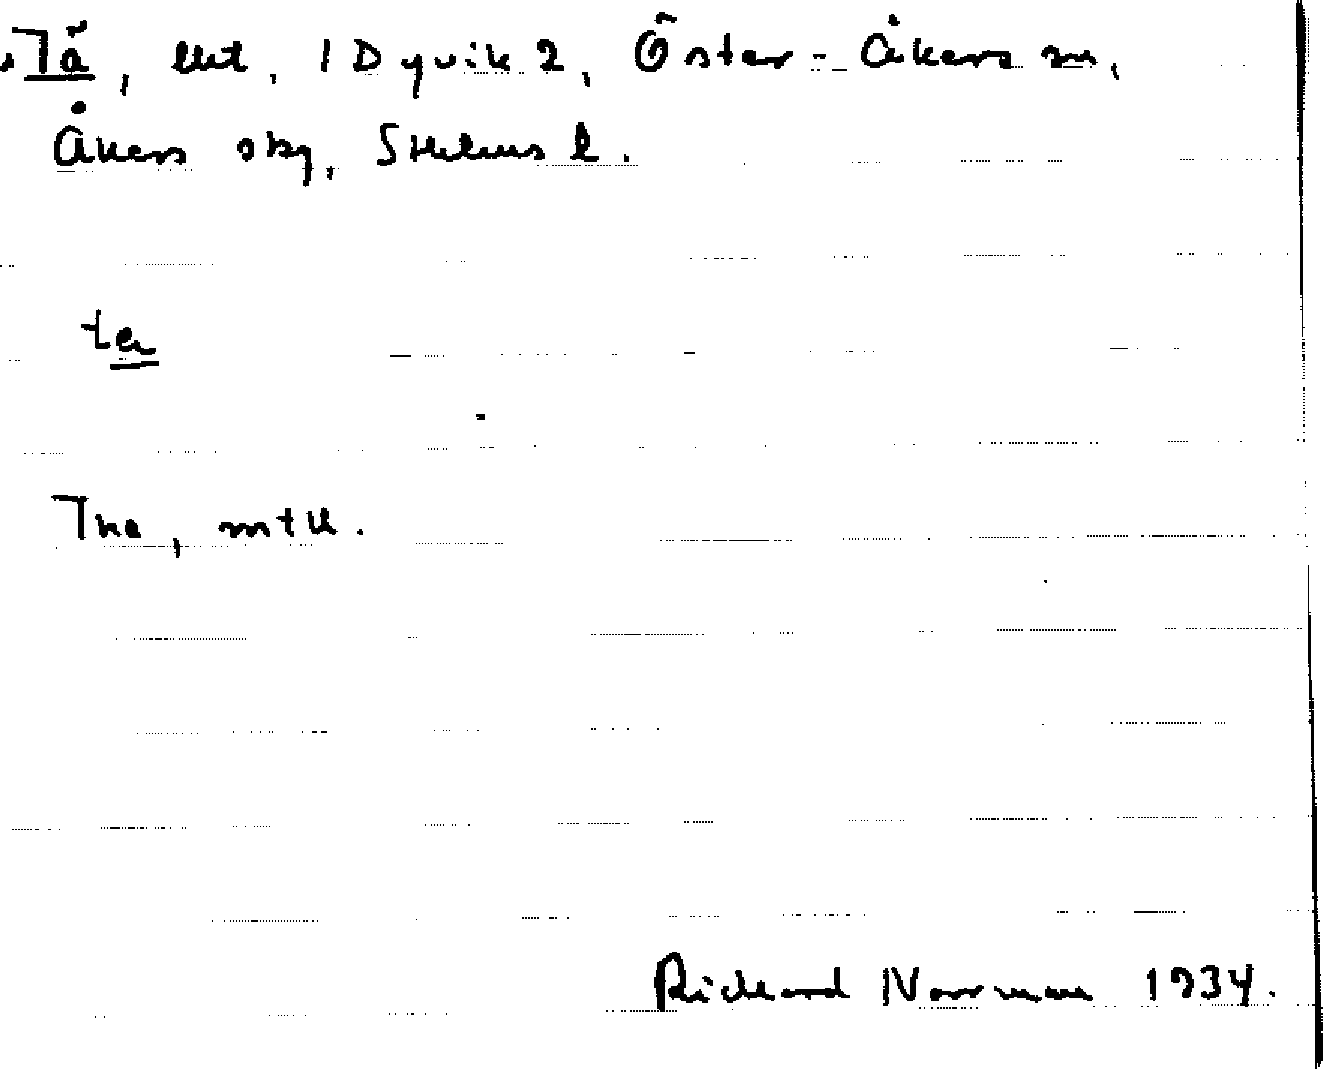 Tå, lht. 1 Dyvik 2, Öster-Åkers sn,
Åkers skg, Sthlms l.
ta
Tna, mtK.
Richard Norrman 1934.